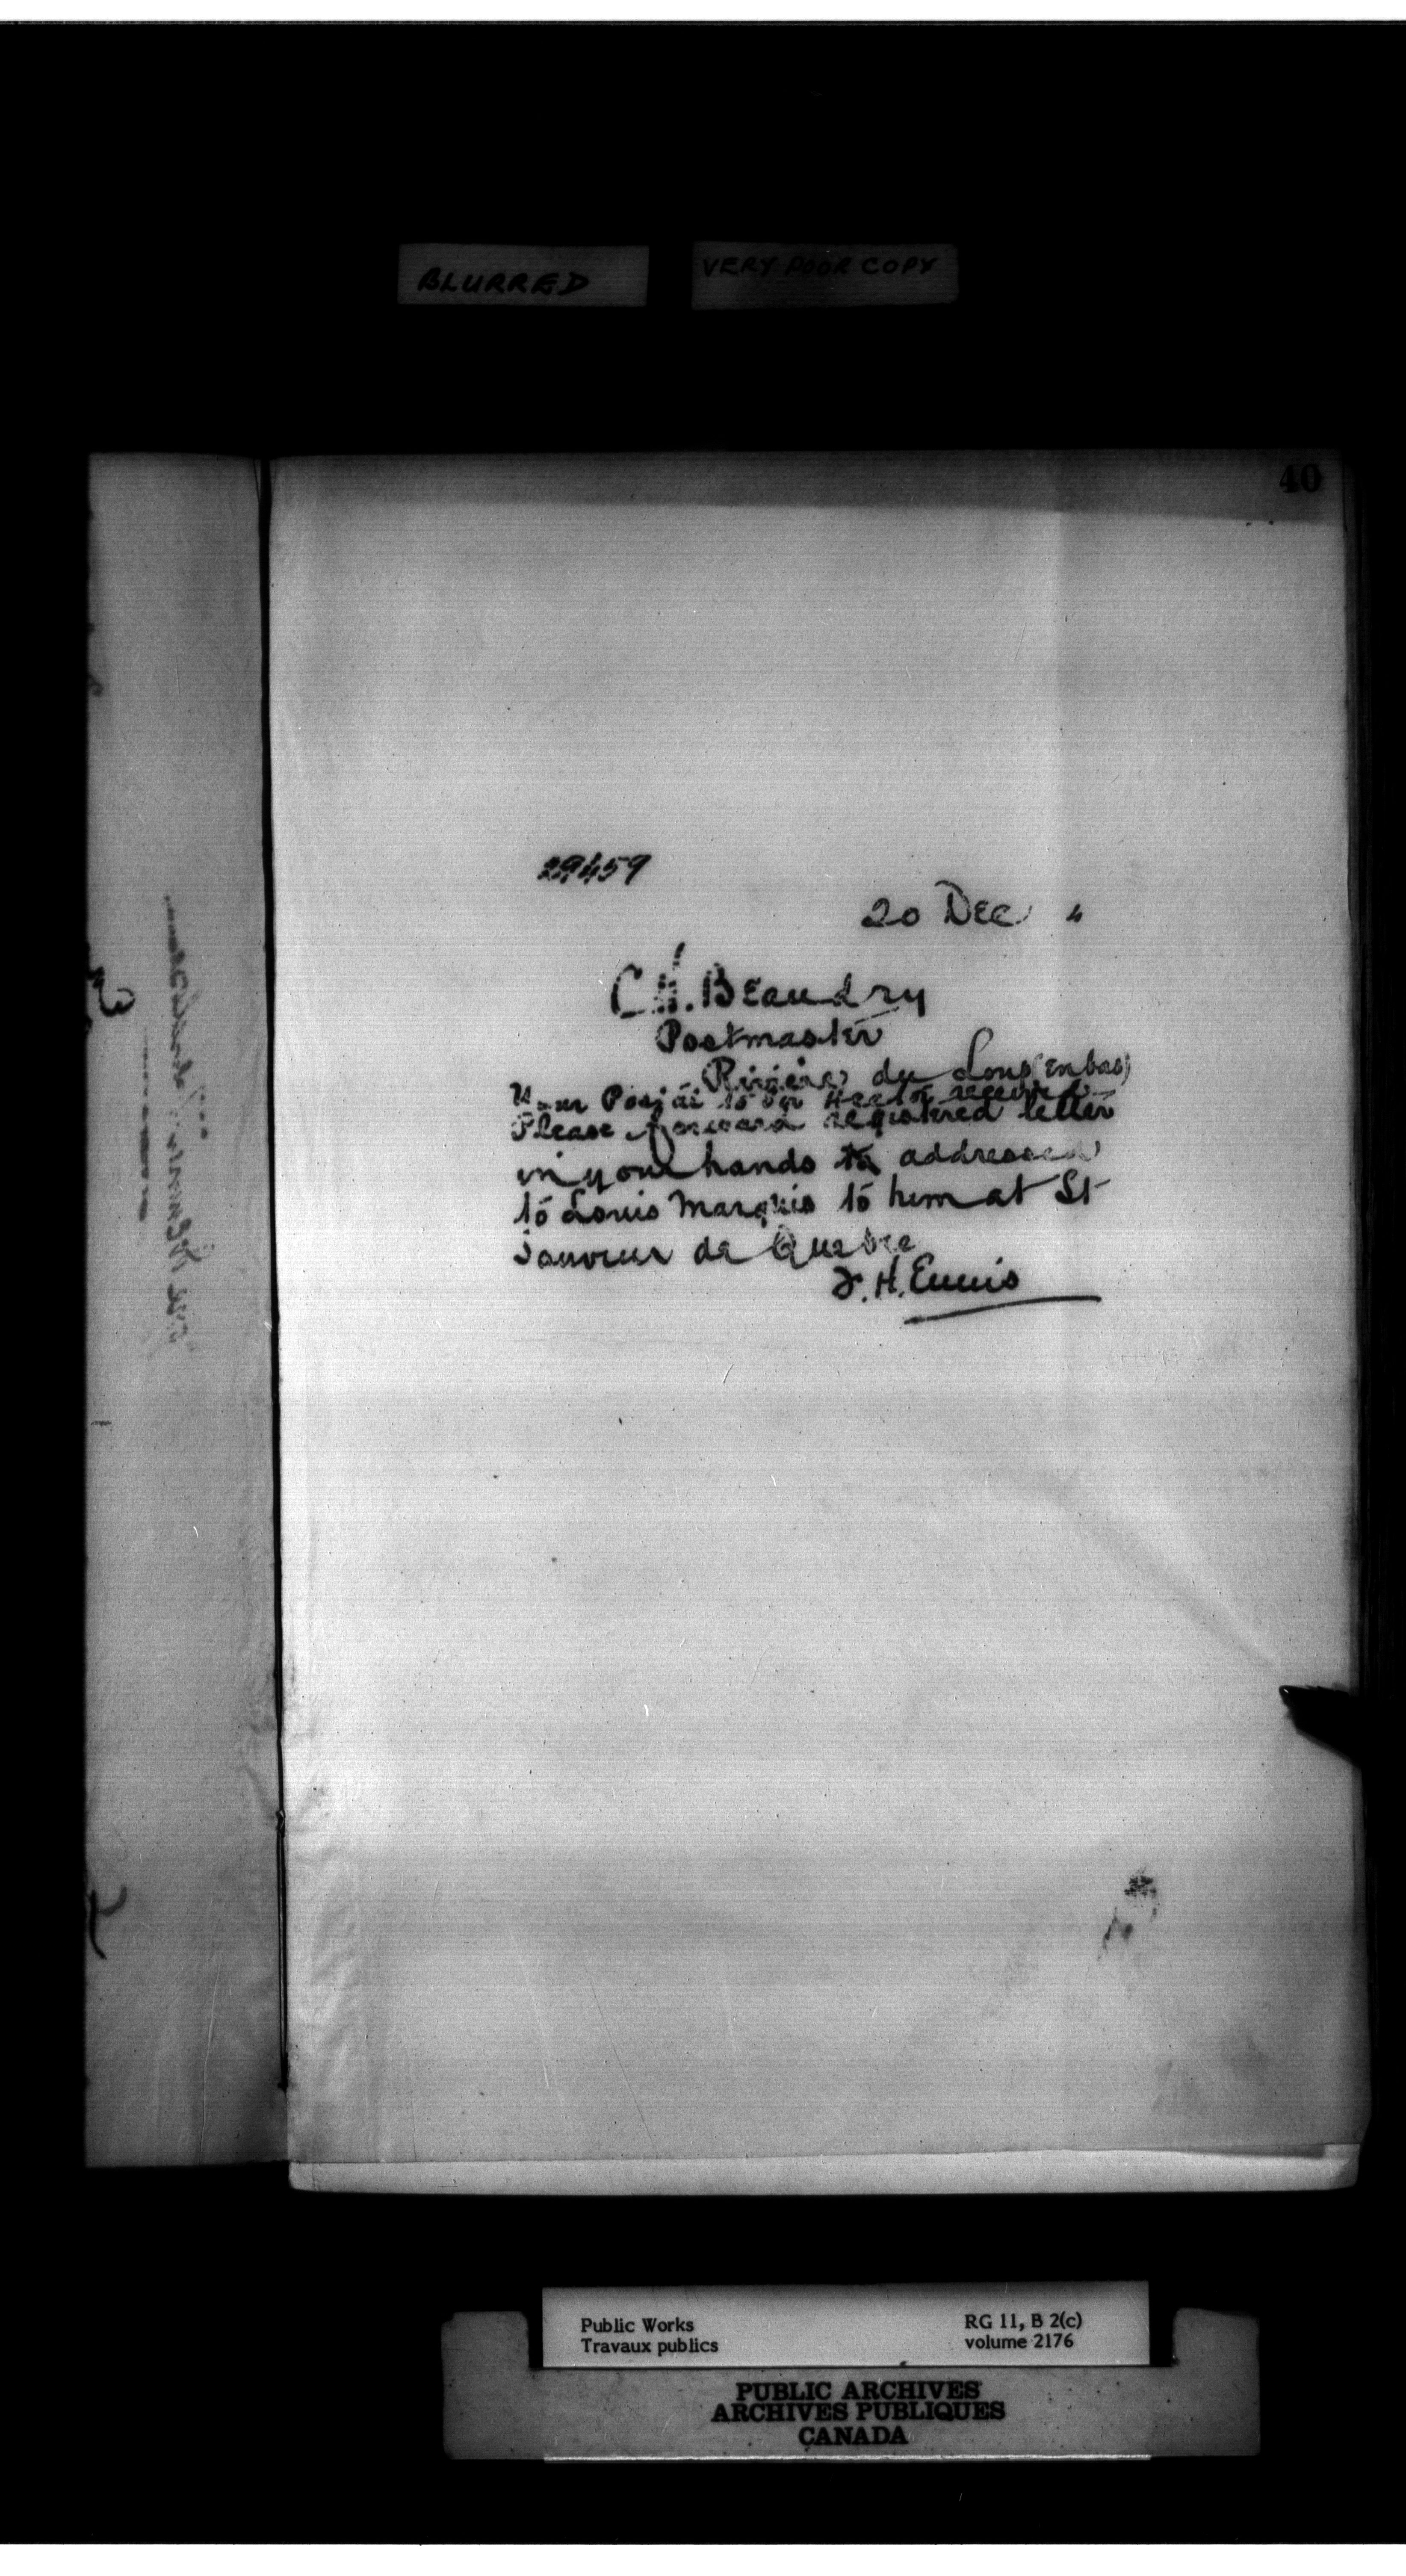 BLURRED
VERY POOR COPY
40
29459
20 Dec "
C. H. Beaudry
Postmaster
Riviere du Loup (en bas)
Your to Sir Hector received
Please forward registered letter
in your hands addressed
to Louis Marquis to him at St
Sauveur de Quebec
F. H. Ennis
Public Works
Travaux publics
RG 11, B 2(c)
volume 2176
PUBLIC ARCHIVES
ARCHIVES PUBLIQUES
CANADA